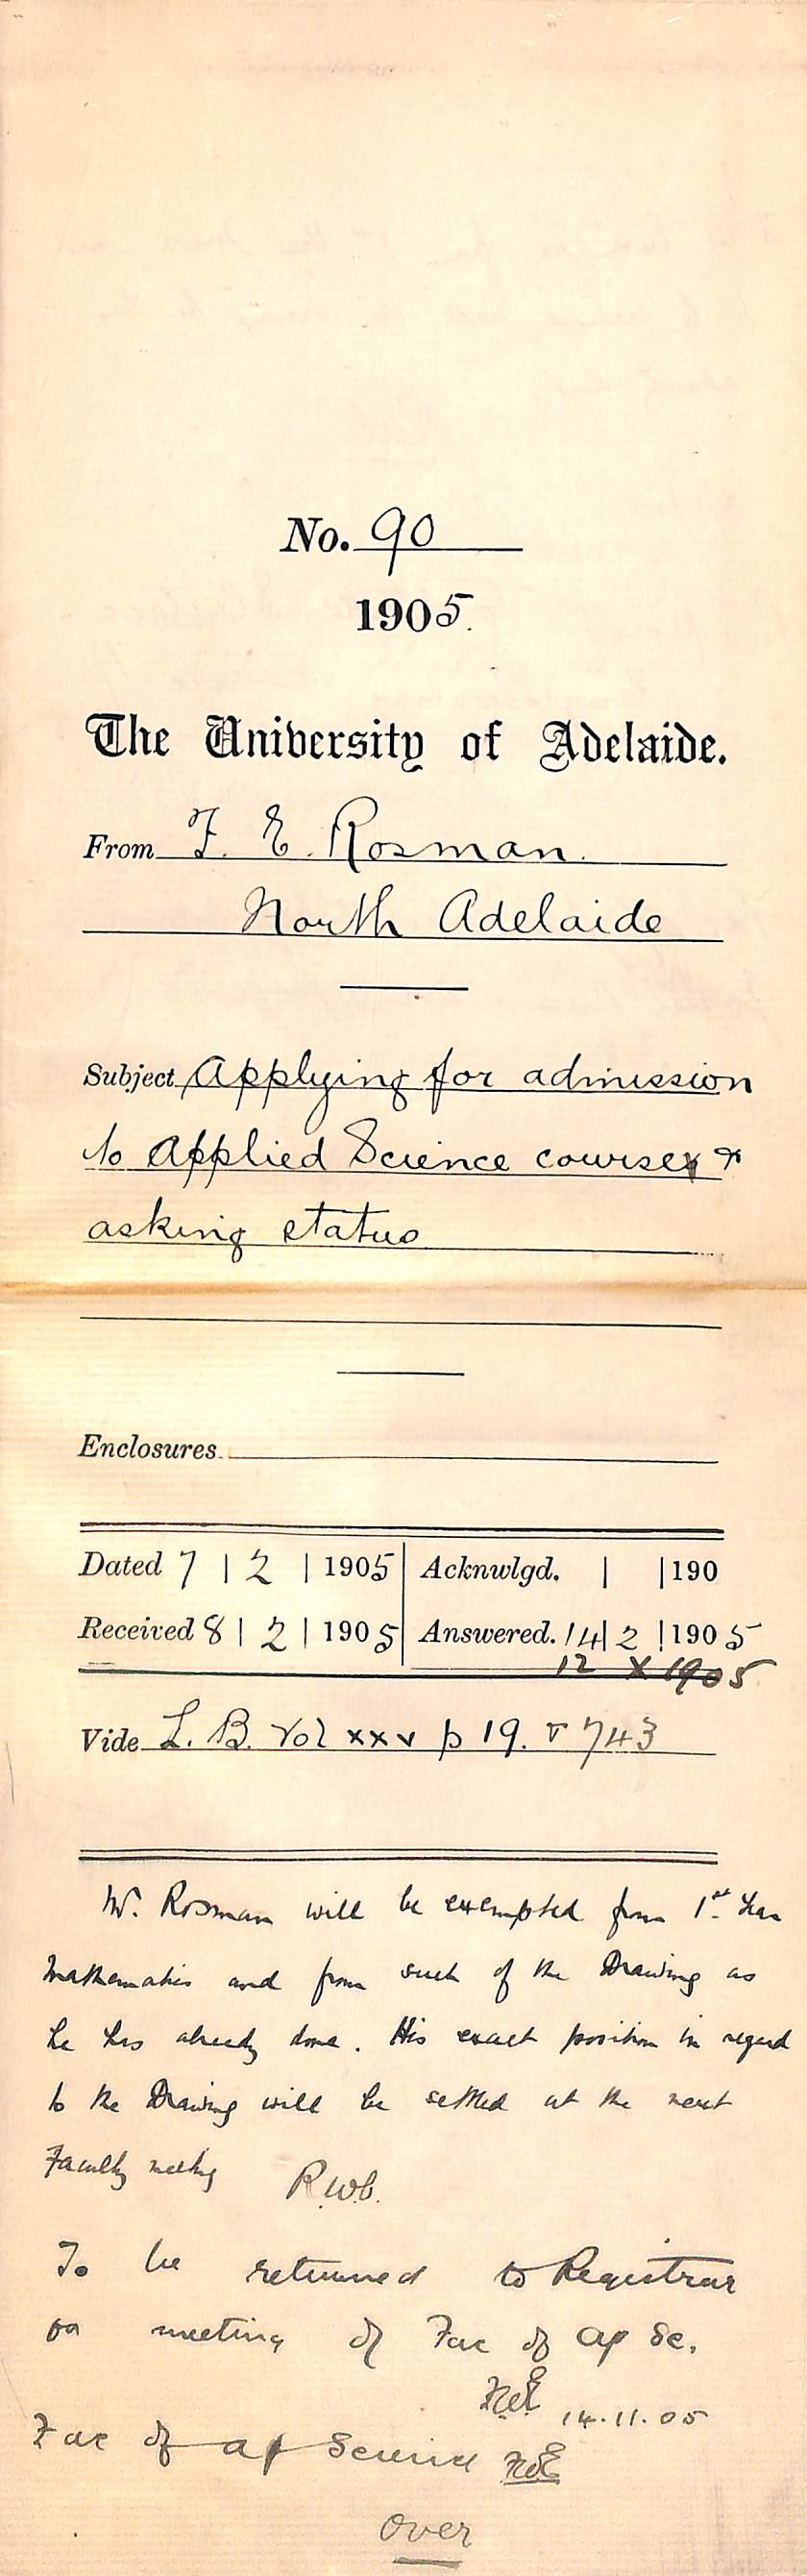 No. 90
1905.
The University of Adelaide.
From F. E. Rosman.
North Adelaide
Subject Applying for admission
to Applied Science course &
asking status
Enclosures
Dated 7 | 2 | 1905 Acknwlgd. | | 190
Received 8 | 2 | 1905 Answered. 14 | 2 | 1905
12 X 1905
Vide L. B. Vol xxv p 19. & 743
Mr. Rosman will be exempted from 1st Year
Mathematics and from such of the Drawing as
he has already done. His exact position in regard
to the Drawing will be settled at the next
Faculty meeting R.W.C.
To be returned to Registrar
on meeting of Fac of Ap Sc.
14.11.05
Fac of Ap Science
Over